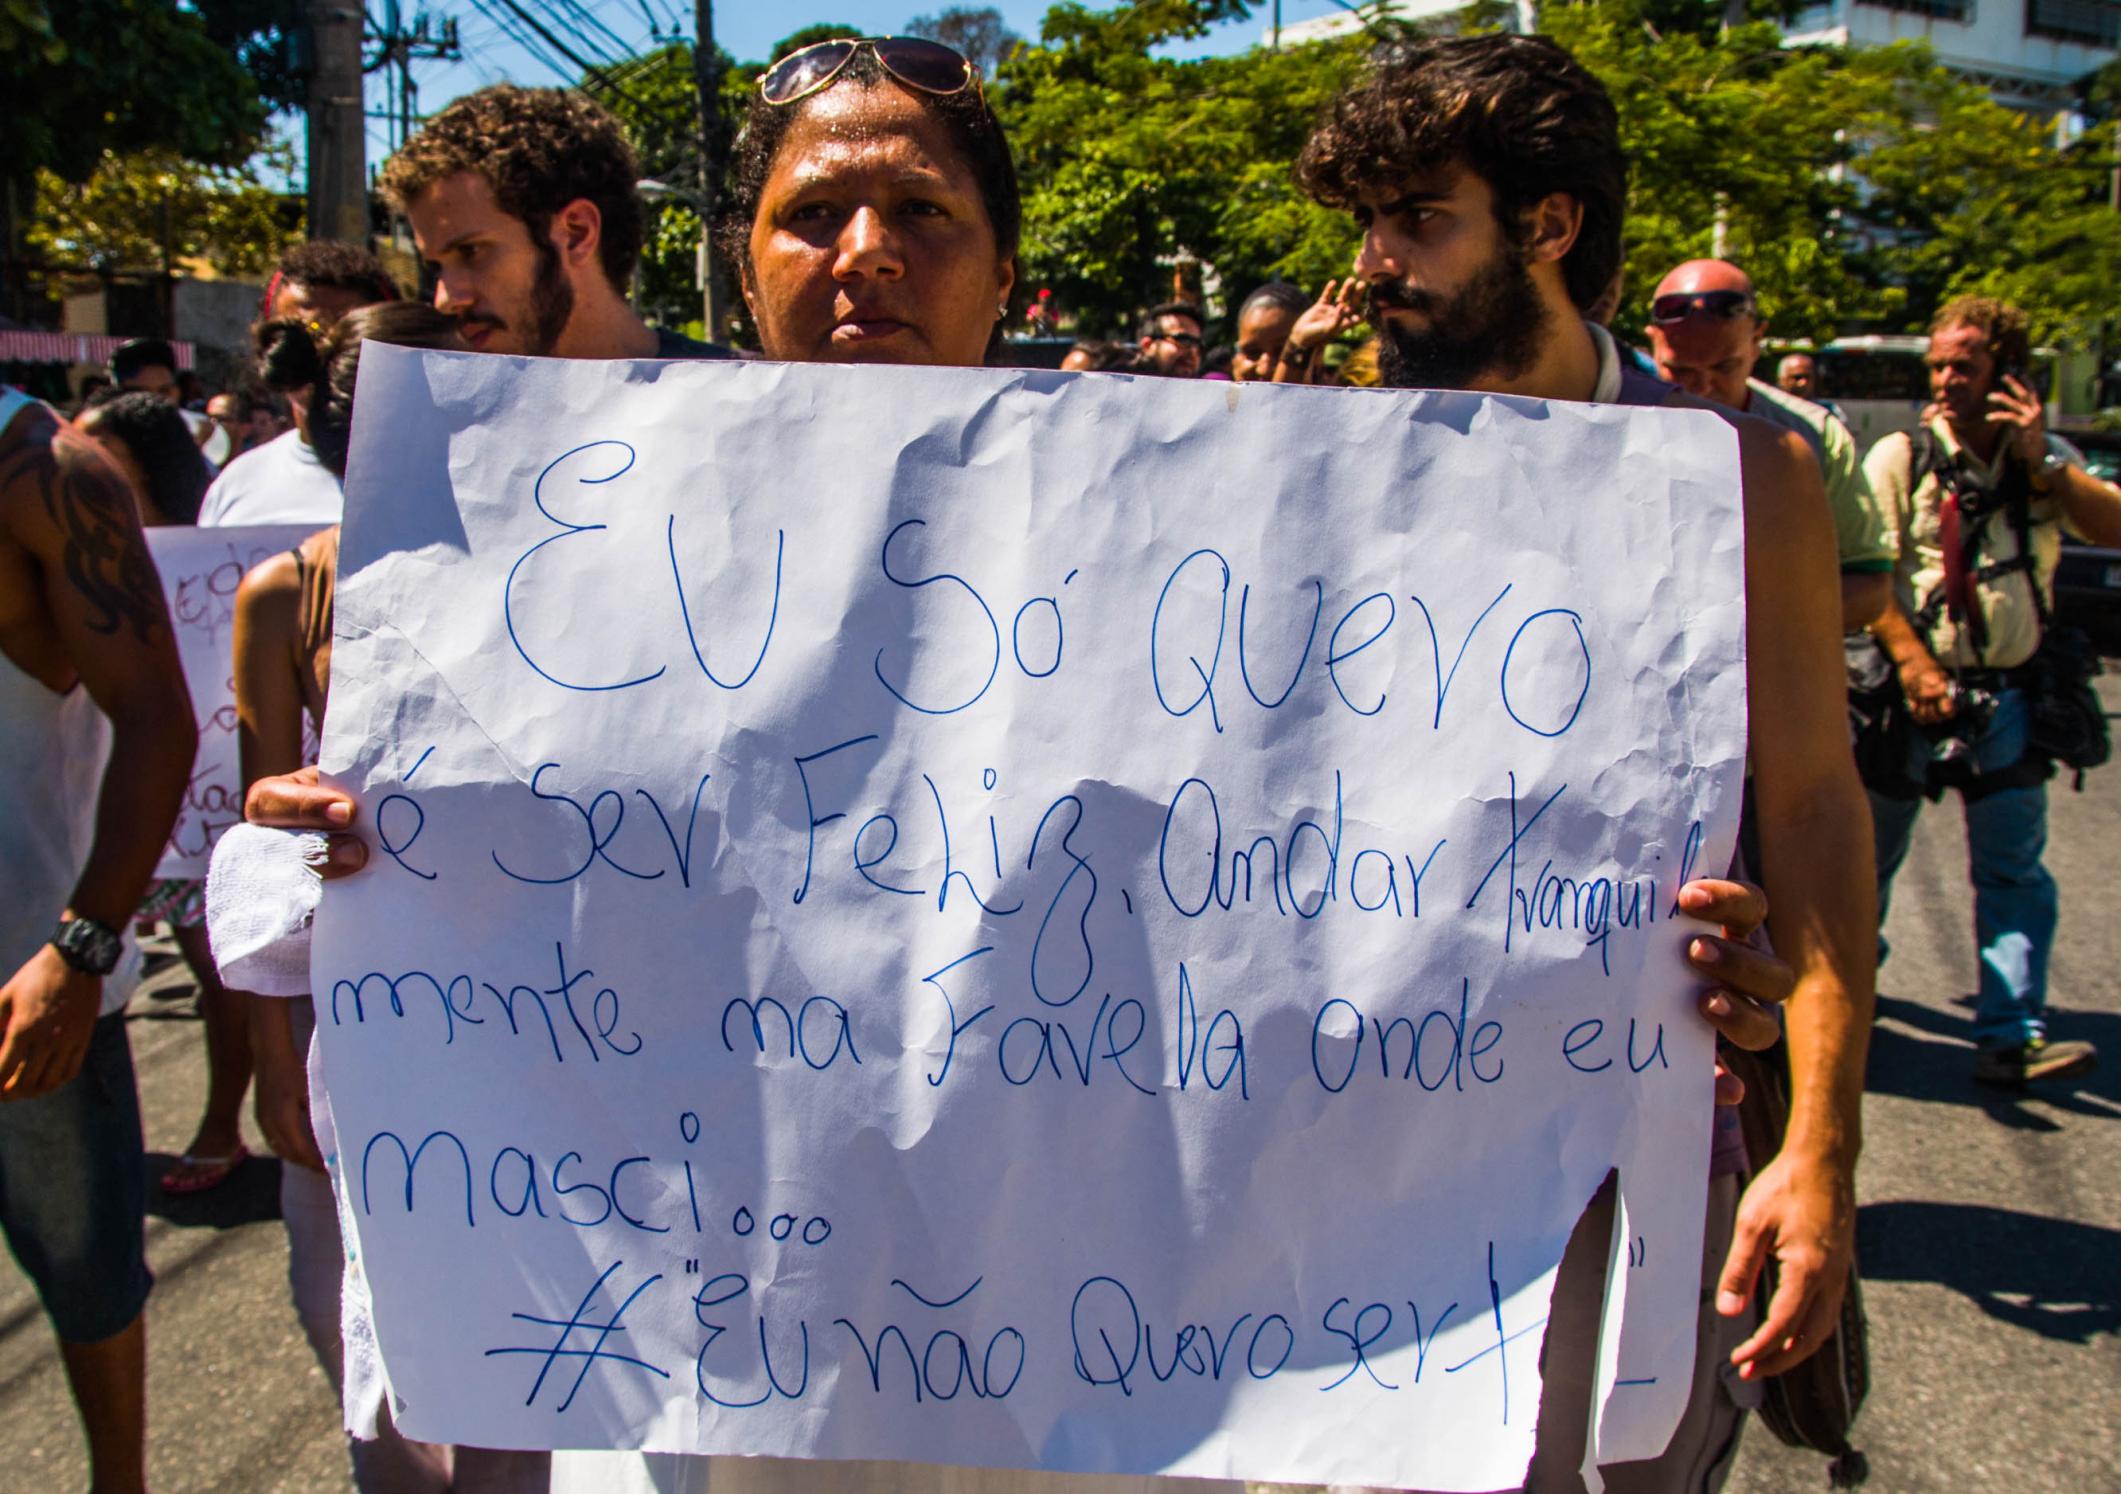 EU Só Quero
é Ser Feliz, Andar tranquil
mente na Favela onde eu
nasci...
# "Eu não Quero ser +
"